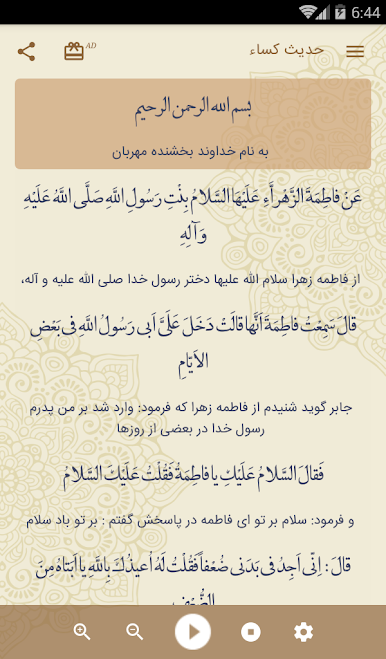 6:44
حدیث کساء
AD
بسم الله الرحمن الرحیم
به نام خداوند بخشنده مهربان
عَنْ فاطِمَةَ الزَّهْراَّءِ عَلَیْهَا السَّلامُ بِنْتِ رَسُولِ اللَّهِ صَلَّی اللَّهُ عَلَیْهِ
وَآلِهِ
از فاطمه زهرا سلام الله علیها دختر رسول خدا صلی الله علیه و آله،
قالَ سَمِعْتُ فاطِمَةَ اَنَّها قالَتْ دَخَلَ عَلَیَّ اَبی رَسُولُ اللَّهِ فی بَعْضِ
الاَیَّامِ
جابر گوید شنیدم از فاطمه زهرا که فرمود: وارد شد بر من پدرم
رسول خدا در بعضی از روزها
فَقالَ السَّلامُ عَلَیْكِ یا فاطِمَةُ فَقُلْتُ عَلَیْكَ السَّلامُ
و فرمود: سلام بر تو ای فاطمه در پاسخش گفتم : بر تو باد سلام
قالَ: اِنّی اَجِدُ فی بَدَنی ضُعْفاً فَقُلْتُ لَهُ اُعیذُكَ بِاللَّهِ یا اَبَتاهُ مِنَ